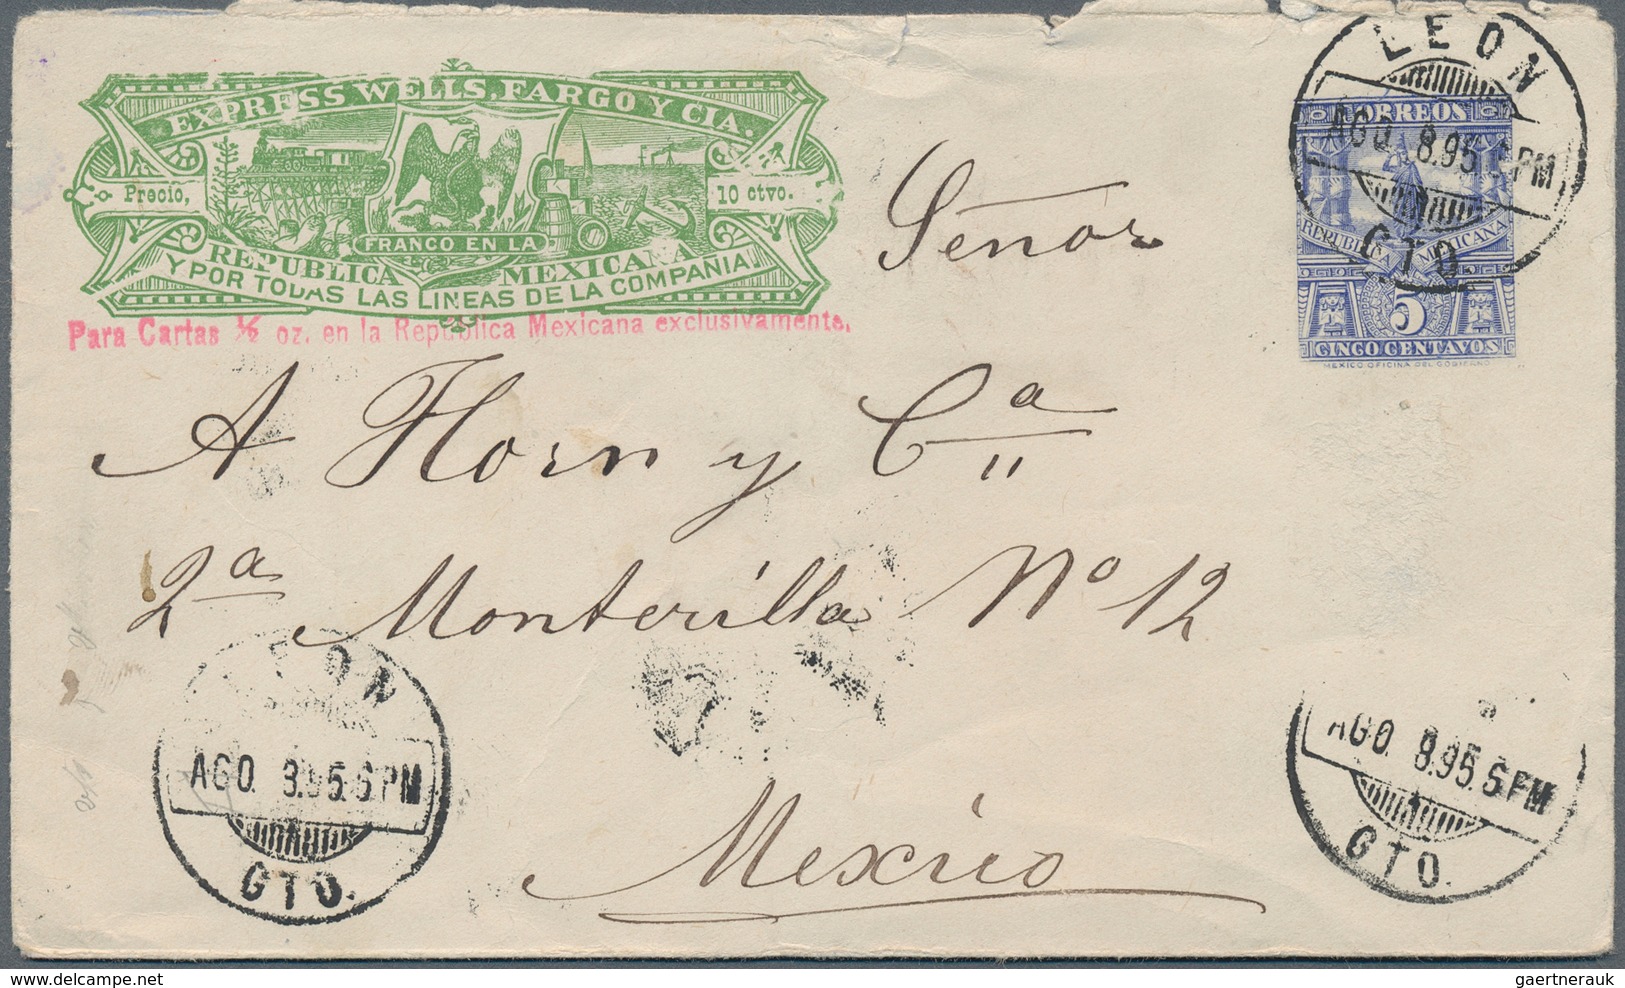 EXPRESS WELLS, FARGO Y CIA.
Precio, 10 ctvo.
FRANCO EN LA
REPUBLICA MEXICANA
Y POR TODAS LAS LINEAS DE LA COMPAÑIA
Para Cartas ½ oz. en la Republica Mexicana exclusivamente.
LEON
AGO. 8.95. PM
GTO
CORREOS
REPUBLICA MEXICANA
5
CINCO CENTAVOS
MEXICO OFICINA DEL GOBIERNO
Señor
A Horn y Cª
2ª Monterilla Nº 12
Mexico
EON
AGO. 8.95. 6 PM
GTO.
AGO. 8.95. 6 PM
GTO.
gaertnerauk